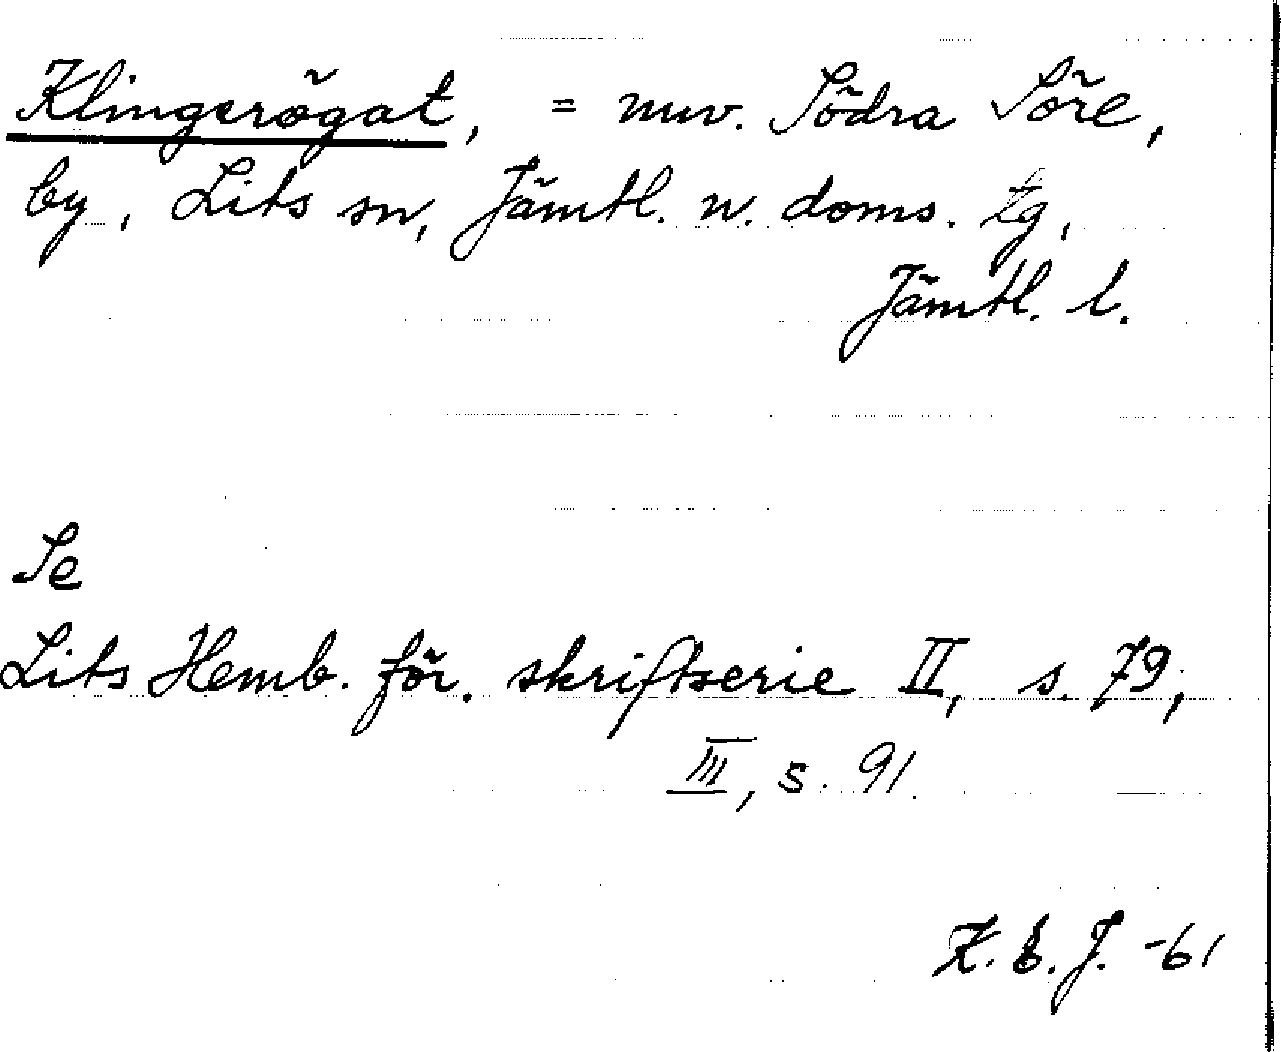 Klingerögat, = nuv. Södra Söre,
by, Lits sn, Jämtl. n. doms. tg,
Jämtl. l.
Se
Lits Hemb. för. skriftserie II, s. 79,
III, s. 91.
K. E. J. -61